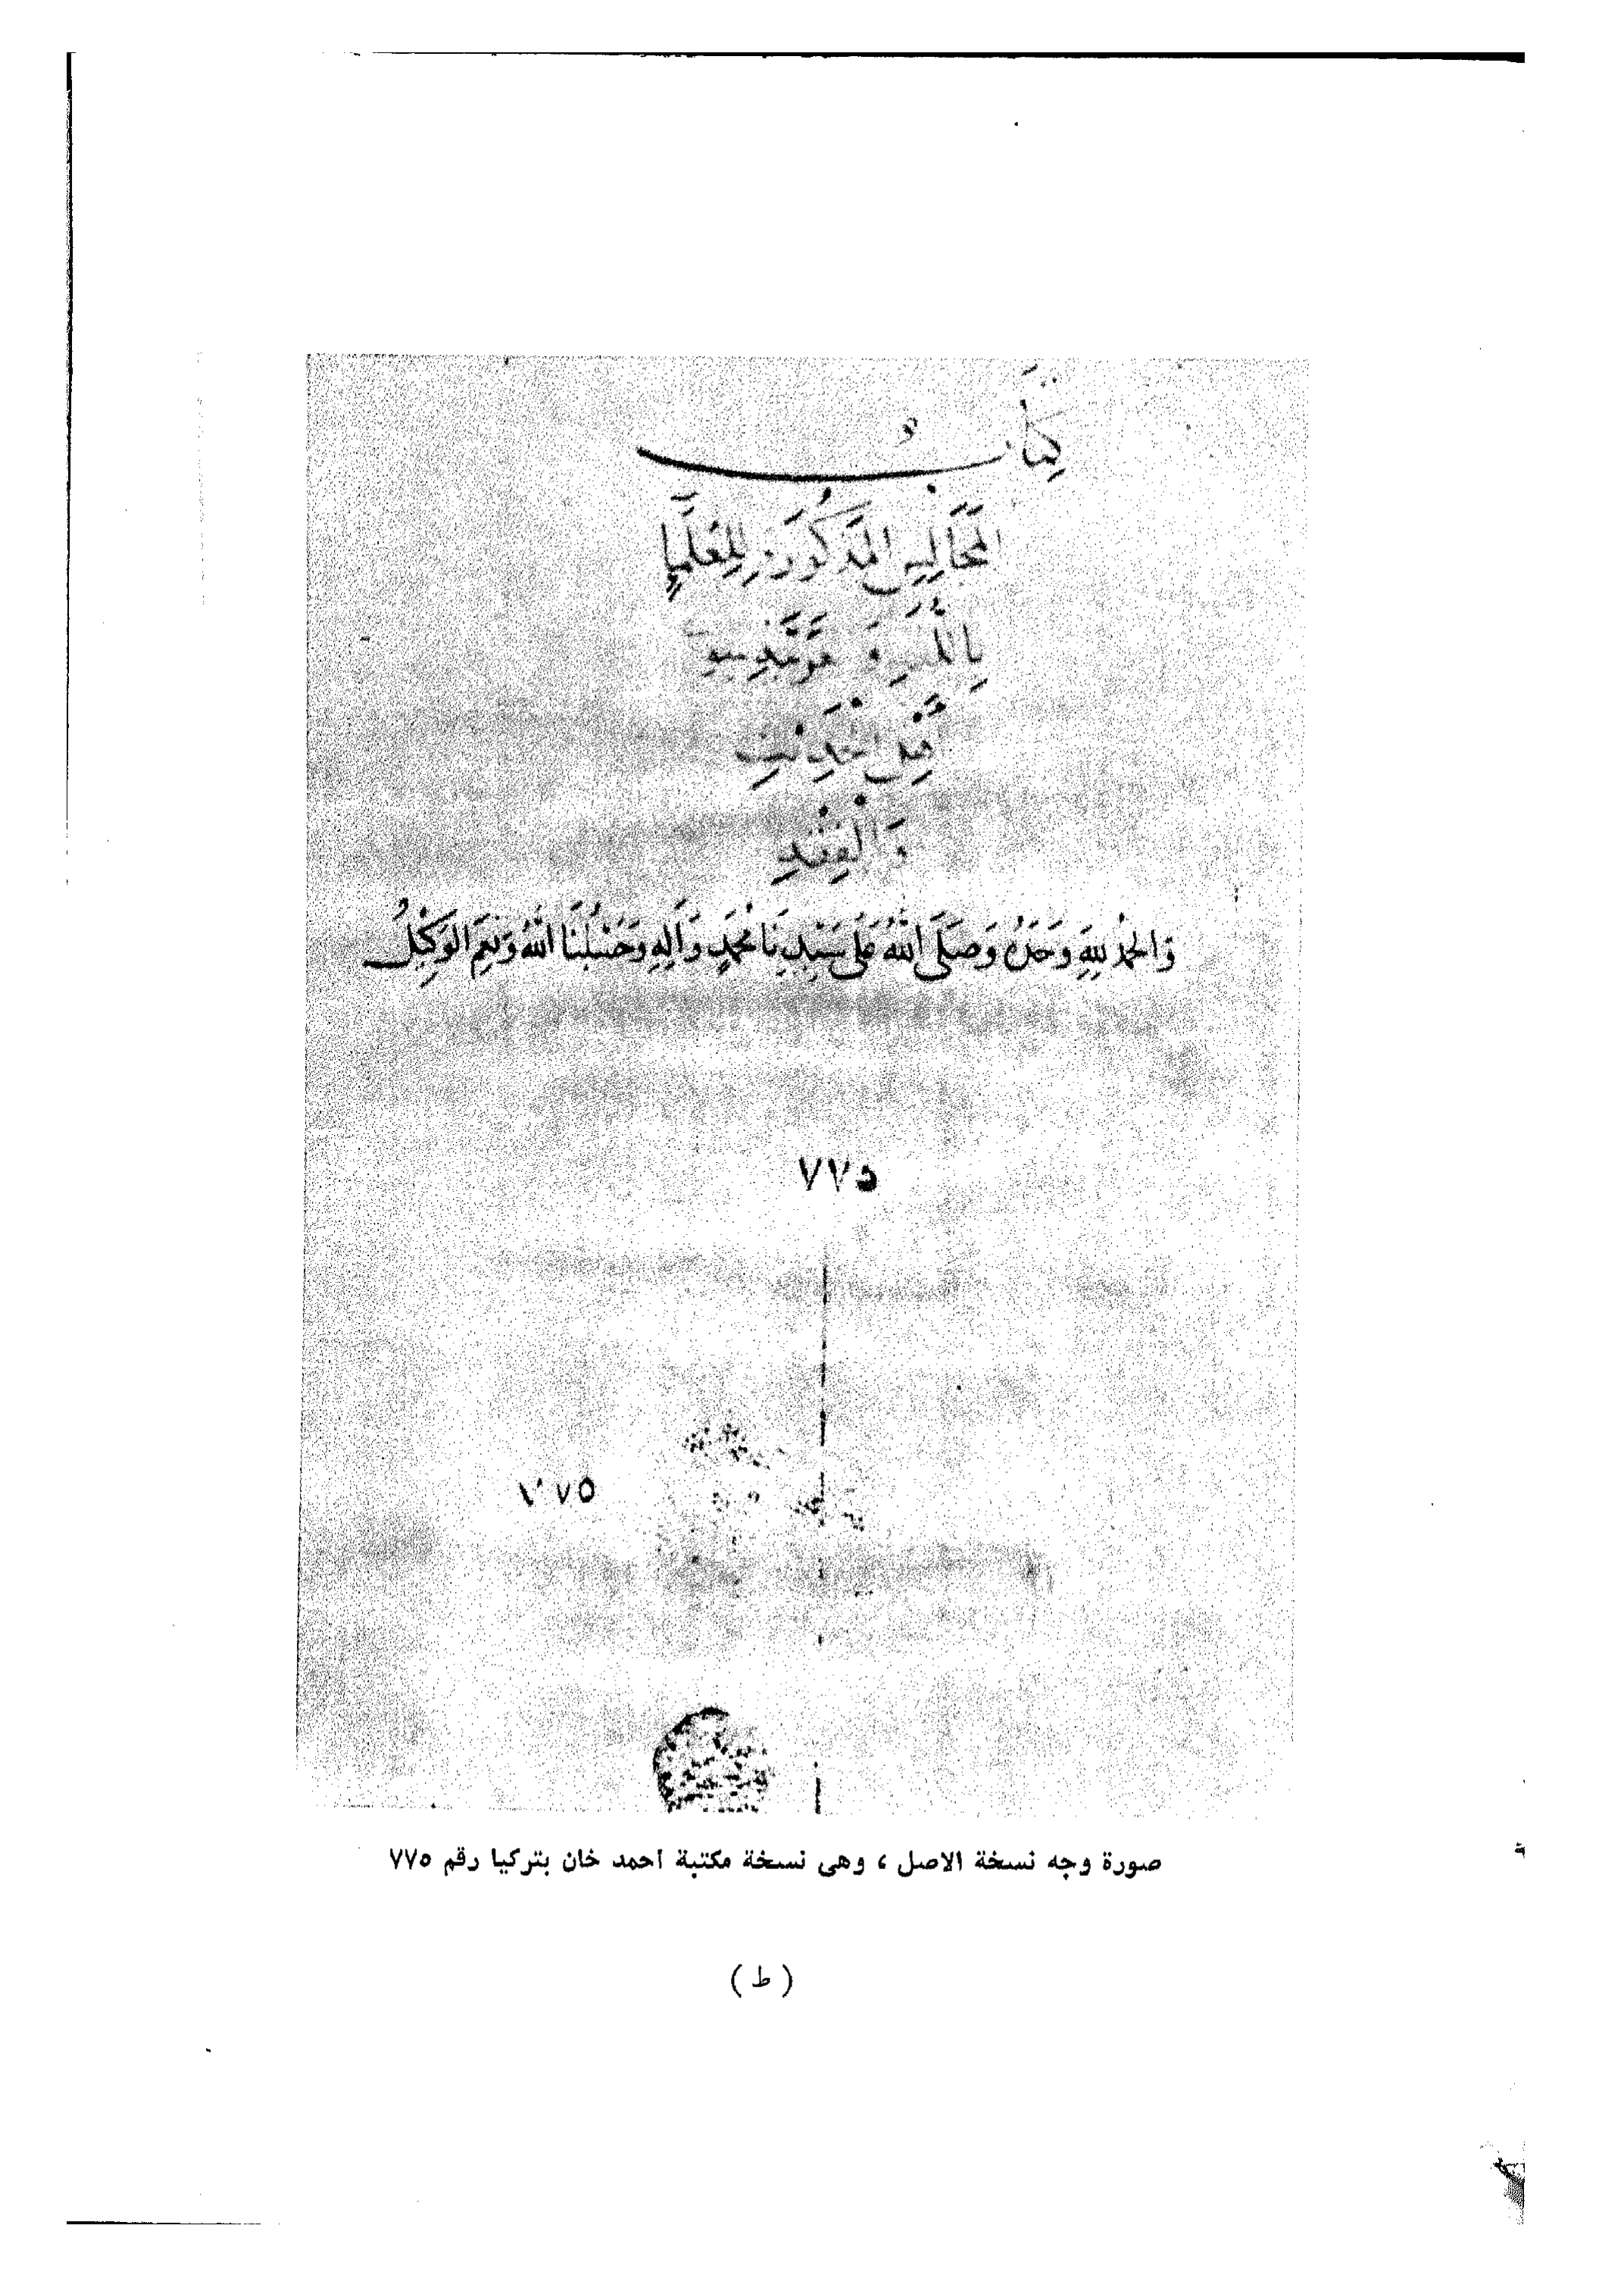 كِتَابُ
المَجَالِسِ المَذكُورَةِ لِلعُلَمَاءِ
بِاللُّغَةِ وَالعَرَبِيَّةِ سِوَى
أَهْلِ الْحَدِيْثِ
وَالْفِقْهِ
وَالحَمْدُ لِلَّهِ وَحْدَهُ وَصَلَّى اللَّهُ عَلَى سَيِّدِنَا مُحَمَّدٍ وَآلِهِ وَحَسْبُنَا اللَّهُ وَنِعْمَ الوَكِيْلُ
٧٧٥
٧٧٥
صورة وجه نسخة الاصل ، وهى نسخة مكتبة احمد خان بتركيا رقم ٧٧٥
( ط )